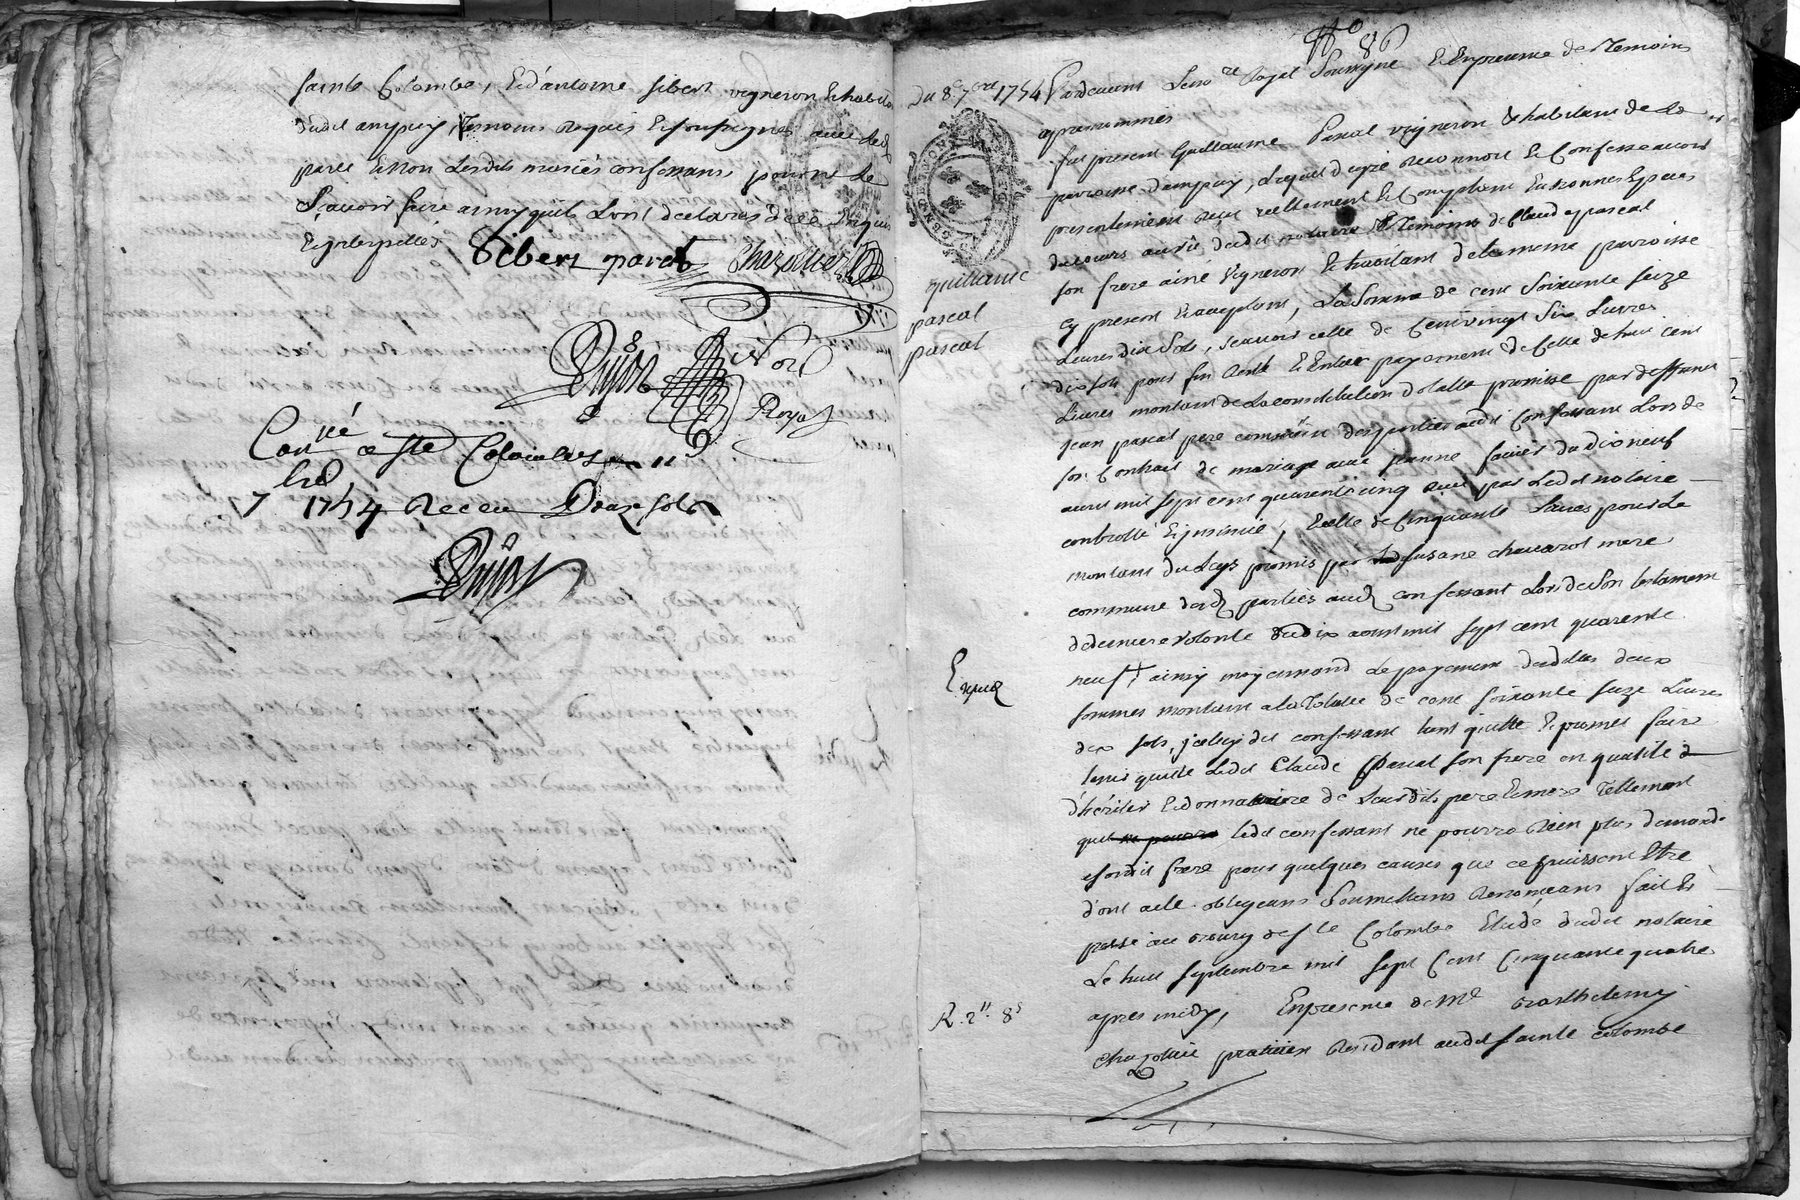 sainte Colombe, Et d'antoine sibert vigneron Et habitant
dudit ampuy, temoins requis Et soussignés avec led.
paret Et non lesdits mariés confessants pour ne le
Sçavoir faire ainsy qu'ils L'ont declarés de ce Enquis
Et interpellés
Sibert paret Chazottier
Dujast Nore
Royal
Con.llé a Ste Colombe le 11e
7bre 1754 Receu Douze sols
Dujast
No 86
Du 8e 7bre 1754 Pardevant Le no.re Royal Soussigné Et En presence des Temoins
apres nommés
fut present Guillaume Pascal vigneron Et habitant de la
parroisse d'ampuy, Lequel de gré reconnoit Et Confesse avoir
presentement reçu reellement Et Comptant En bonnes Especes
du cours au vû dudit notaire Et Temoins de Claude pascal
son frere ainé vigneron Et habitant de la meme parroisse
Cy present Et acceptant, La Somme de cent Soixante Seize
Livres dix Sols, sçavoir celle de Cent vingt Six Livres
dix sols pour fin Reste Et Entier payement de Celle de huit cent
Livres montant de La constitution dotalle promise par deffunt
jean pascal pere commun desparties audit Confessant Lors de
son Contrat de mariage avec jeanne faures du dix neuf
avril mil sept cent quarente cinq reçu par Ledit notaire
controllé Et jnsinué, Et celle de Cinquante Livres pour Le
montant du Legs promis par susane chavarot mere
commune desd. parties aud. confessant Lors de Son testament
de derniere volonté du dix aoust mil sept cent quarente
neuf ainsy moyennand Le payement desdittes deux
sommes montant a la Totalle de cent soixante seize Livres
dix sols, jceluy dit confessant tient quitte Et promet faire
tenir quitte Ledit Claude Pascal son frere en qualité
d'héritier Et donnataire de Leurdits pere Et mere Tellement
que Ledit confessant ne pourra Rien plus demander
a sondit frere pour quelques causes que ce puissent Etre
dont acte obligeant Soumettant Renonceant fait Et
passé au bourg de Ste Colombe Etude dudit notaire
Le huit septembre mil sept Cent Cinquante quatre
apres midy, En presence de Me Barthelemy
Chazottier praticien Residant audit sainte colombe
guillaume
pascal
pascal
Exped
R. 2ll 8s